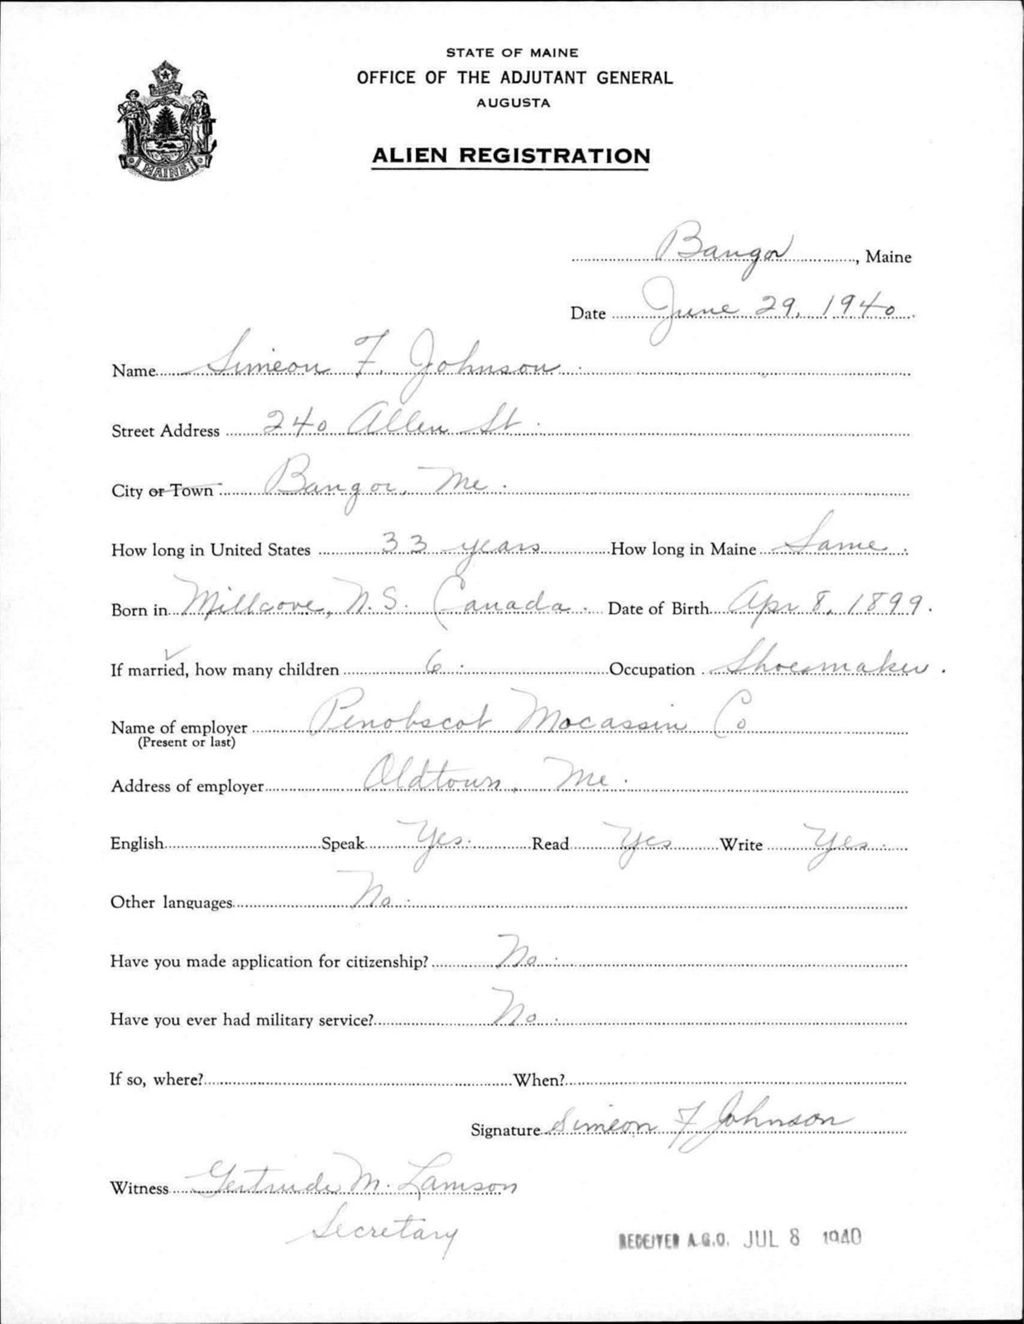 STATE OF MAINE
OFFICE OF THE ADJUTANT GENERAL
AUGUSTA
ALIEN REGISTRATION
MAINE
Bangor, Maine
Date June 29, 1940
Name Simeon F. Johnson
Street Address 240 Allen St
City or Town Bangor, Me.
How long in United States 33 years How long in Maine Same
Born in Millcove, N.S. Canada Date of Birth Apr 8, 1899.
If married, how many children 6 Occupation Shoemaker.
Name of employer Penobscot Mocassin Co
(Present or last)
Address of employer Oldtown, Me.
English Speak Yes. Read Yes Write Yes.
Other languages No.
Have you made application for citizenship? No.
Have you ever had military service? No.
If so, where? When?
Signature Simeon F Johnson
Witness Gertrude M. Lamson
Secretary
RECEIVED A.G.O. JUL 8 1940